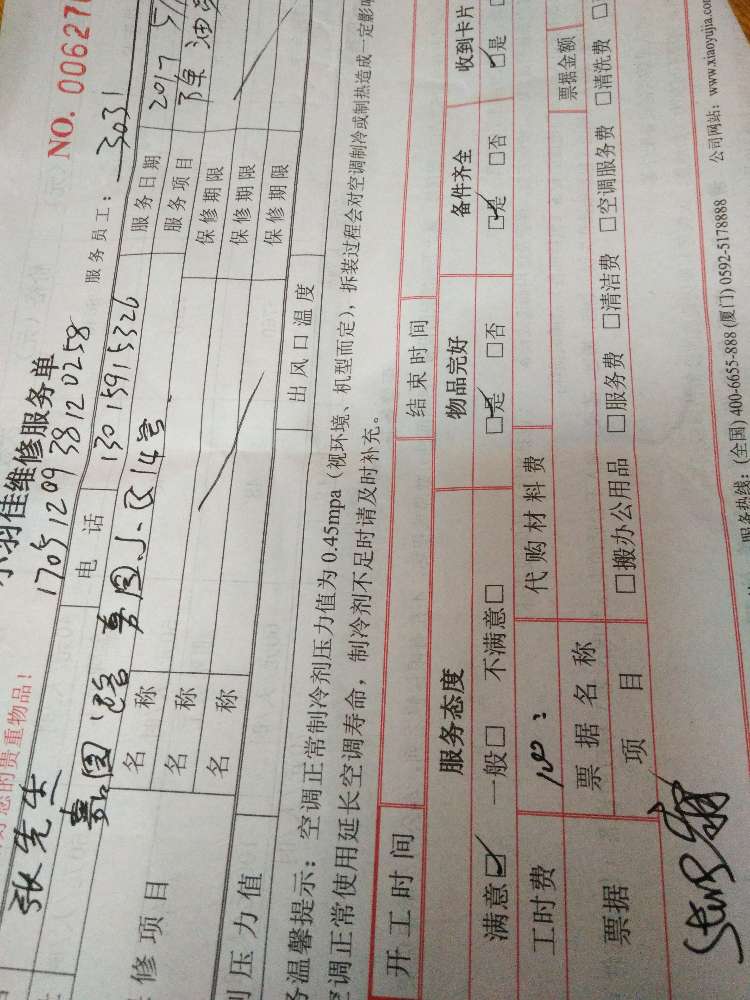 羽佳维修服务单
NO. 00627
您的贵重物品!
170512093812 0258
服务员工: 3031
张先生
电话
13015915326
服务日期
2017
嘉园路
嘉园小区14号
服务项目
修项目
名称
保修期限
名称
保修期限
名称
保修期限
压力值
出风口温度
温馨提示：空调正常制冷剂压力值为0.45mpa（视环境、机型而定），拆装过程会对空调制冷或制热造成一定影
调正常使用延长空调寿命，制冷剂不足时请及时补充。
开工时间
结束时间
服务态度
物品完好
备件齐全
收到卡片
满意☑ 一般□ 不满意□
☑是 □否
☑是 □否
☑是 □
工时费
代购材料费
票据金额
票据
票据名称
项目
□搬办公用品 □服务费 □清洁费 □空调服务费 □清洗费 □
服务热线：(全国) 400-6655-888 (厦门) 0592-5178888 公司网站：www.xiaoyujia.co